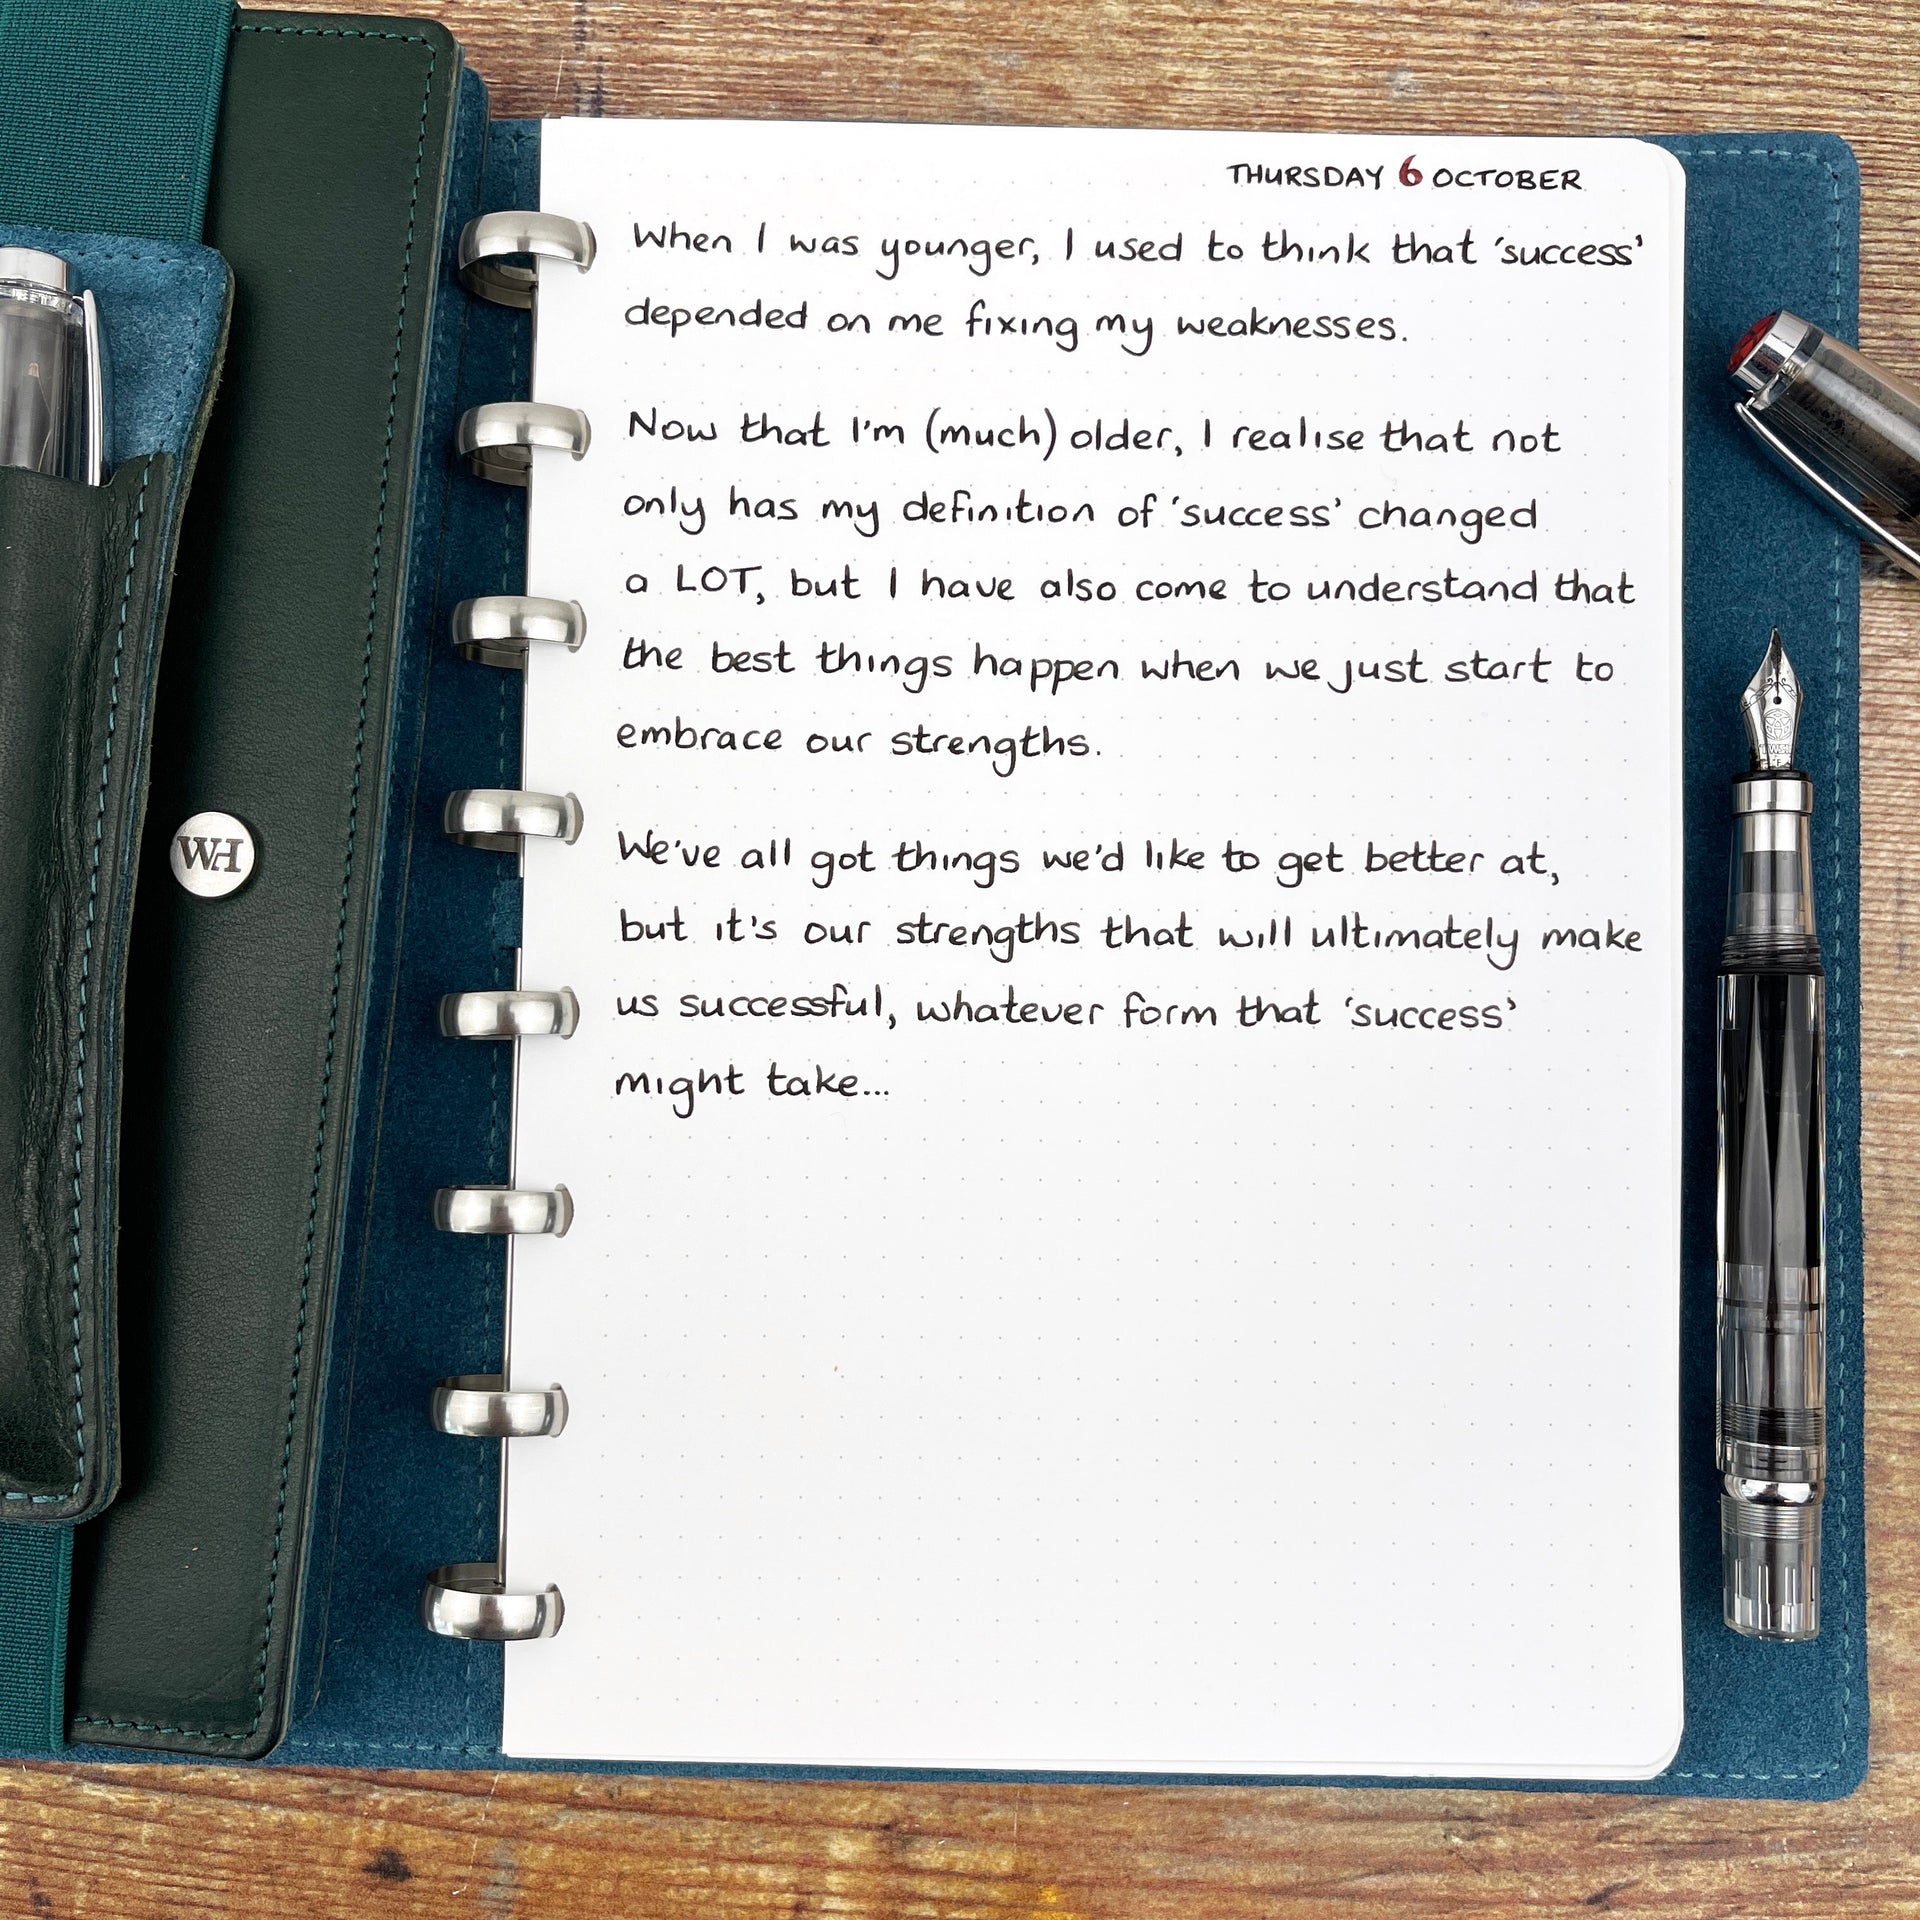 THURSDAY 6 OCTOBER
When I was younger, I used to think that 'success'
depended on me fixing my weaknesses.
Now that I'm (much) older, I realise that not
only has my definition of 'success' changed
a LOT, but I have also come to understand that
the best things happen when we just start to
embrace our strengths.
We've all got things we'd like to get better at,
but it's our strengths that will ultimately make
us successful, whatever form that 'success'
might take...
WH